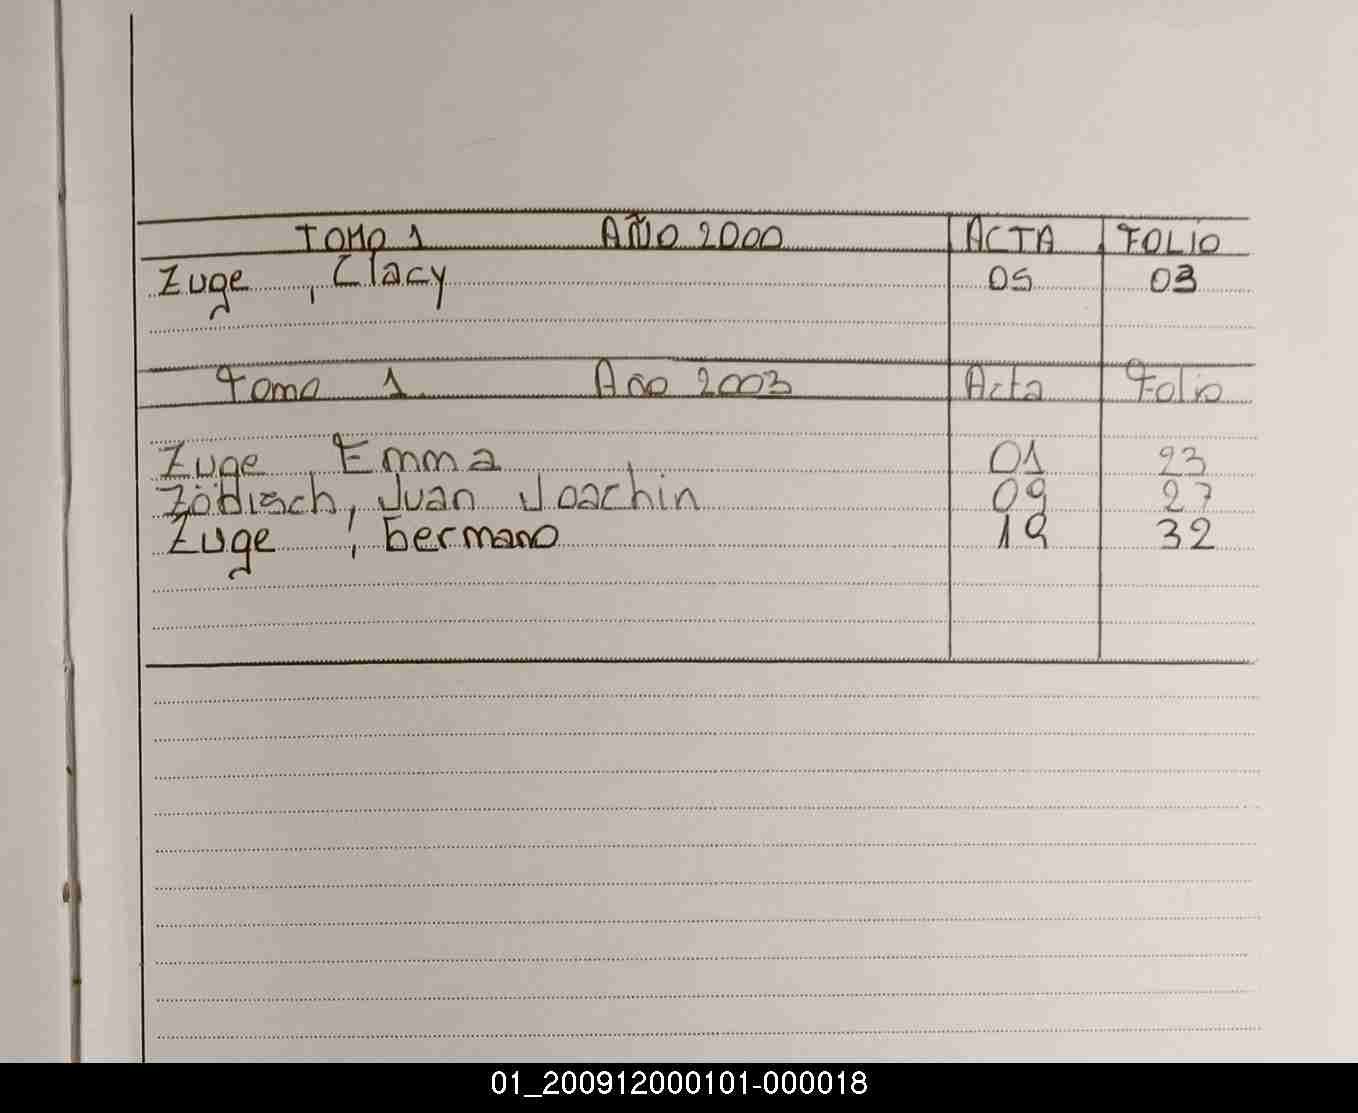 TOMO 1 AÑO 2000 ACTA FOLIO
Zuge, Clacy 05 03
Tomo 1 Año 2003 Acta Folio
Zuge, Emma 01 23
Zödisch, Juan Joachin 09 27
Zuge, Germano 19 32
01_200912000101-000018